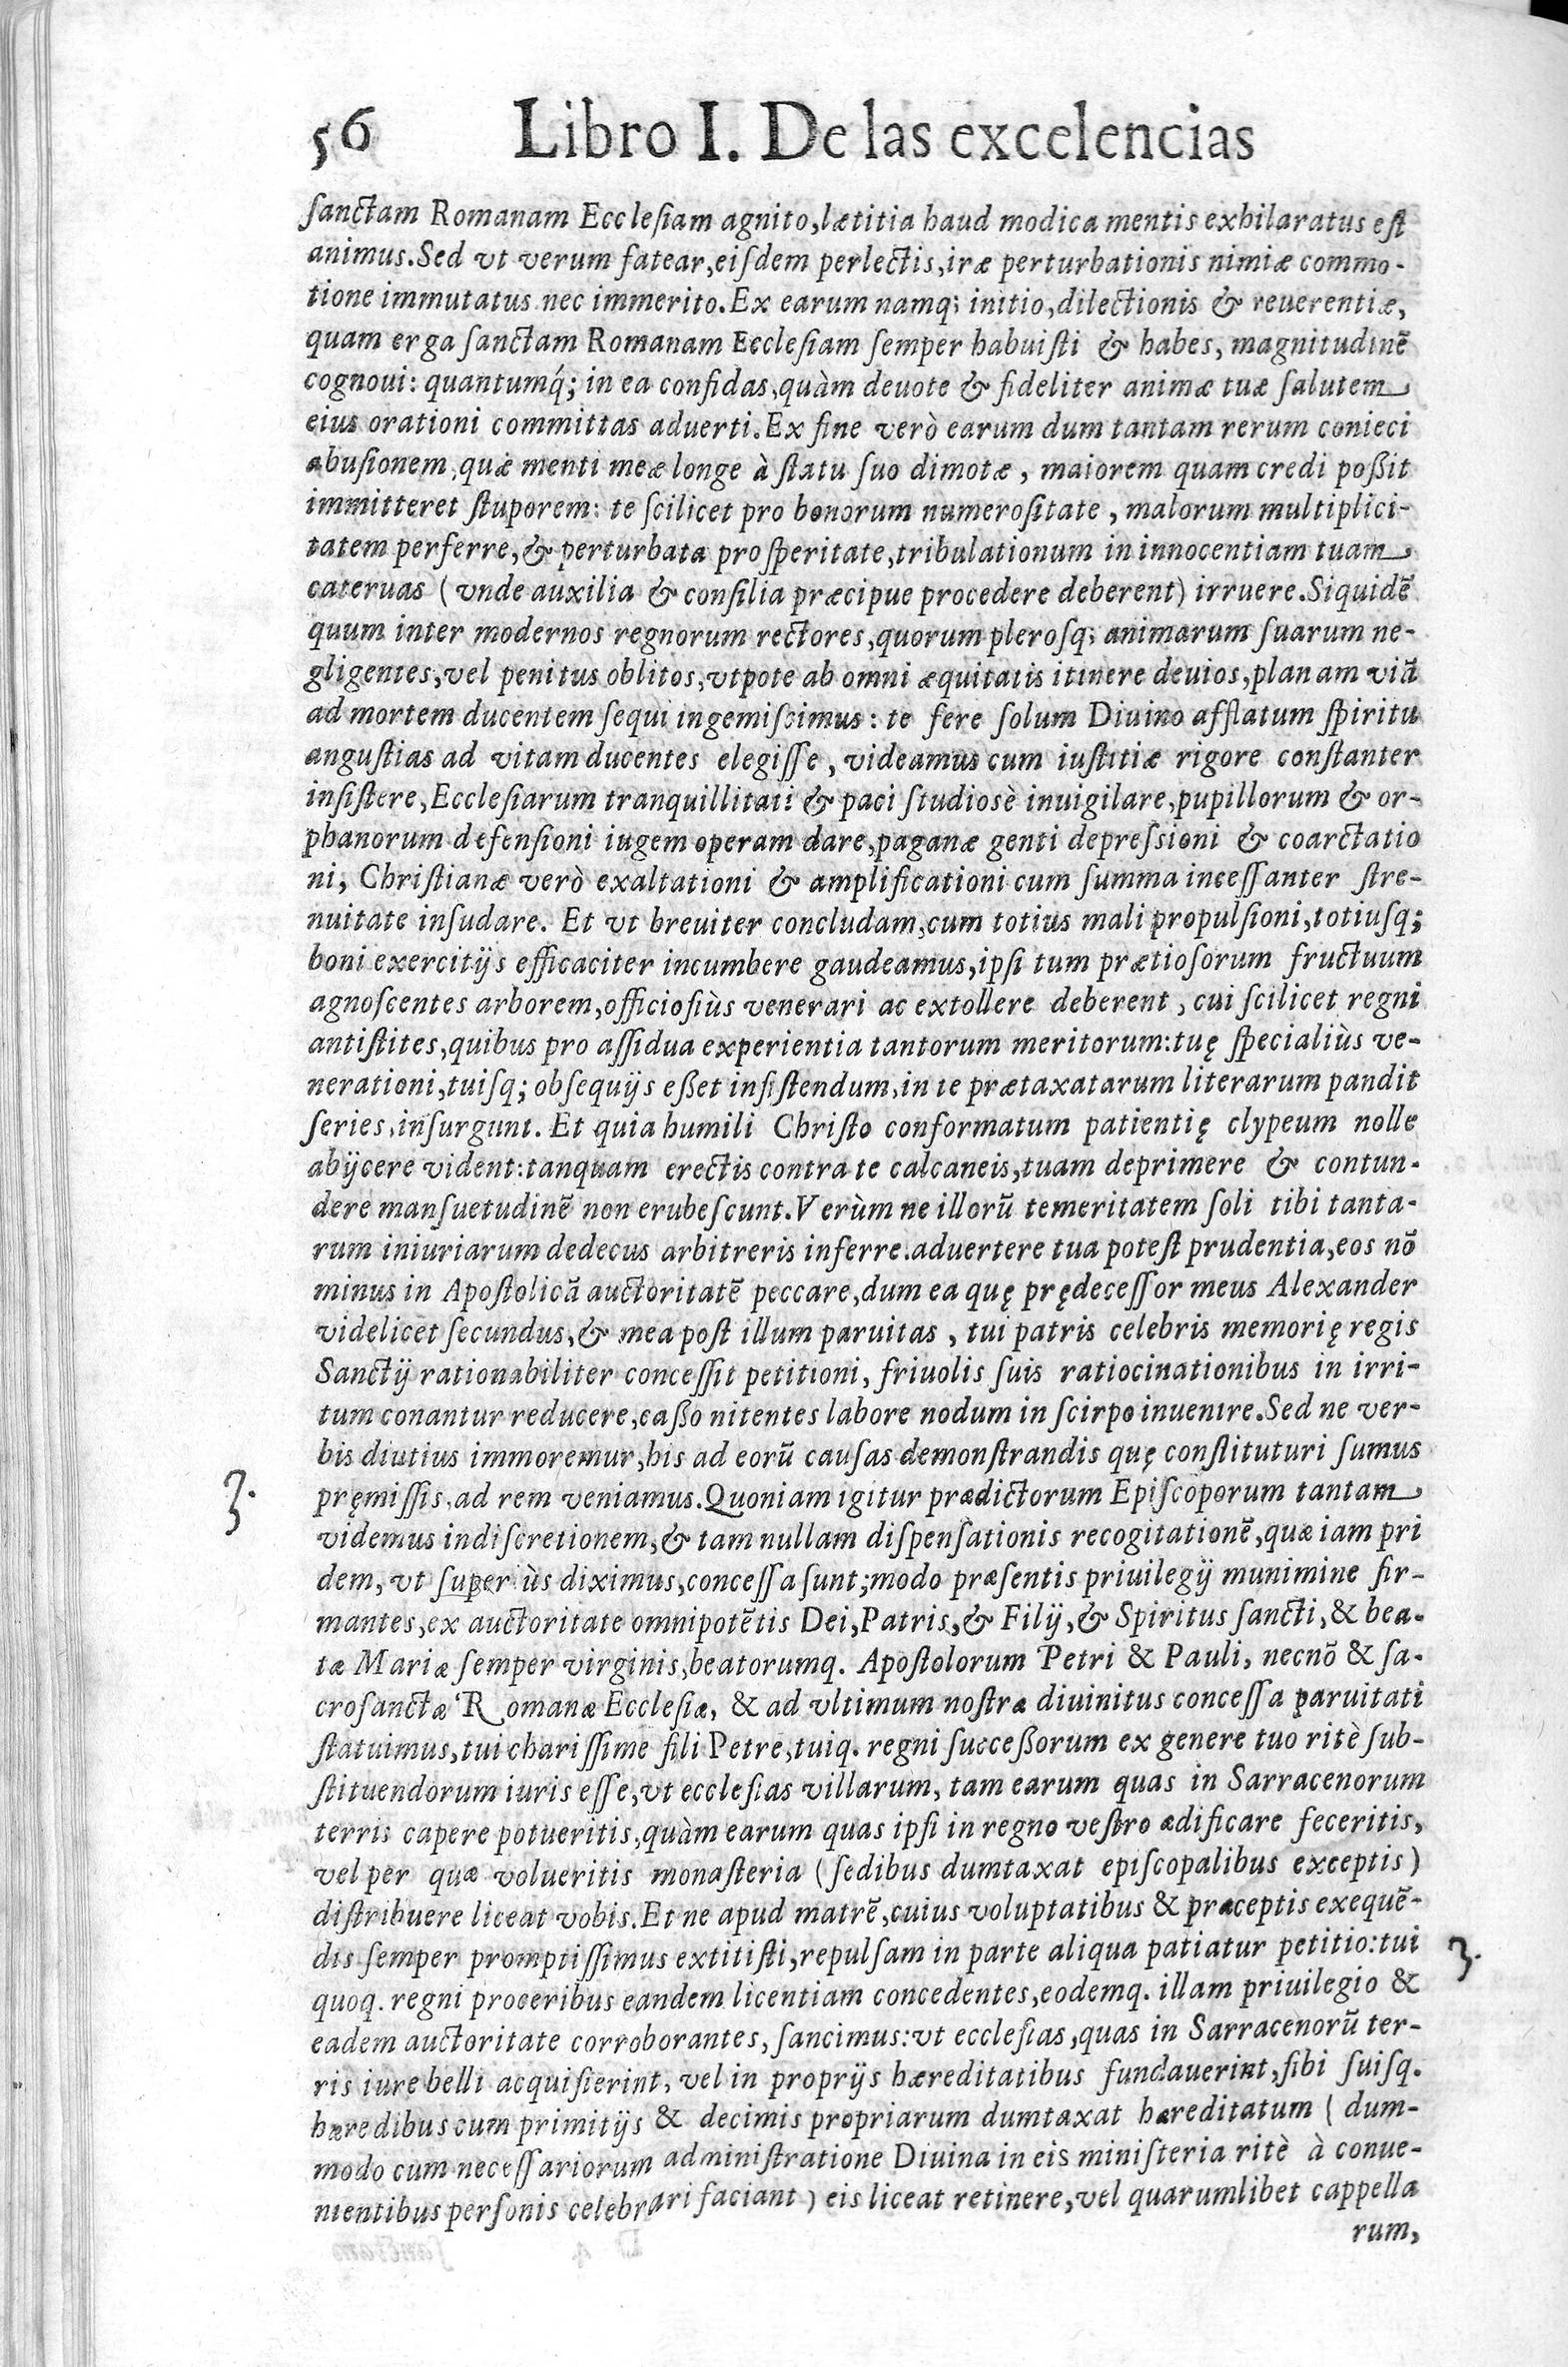 56 Libro I. De las excelencias
ſanctam Romanam Eccleſiam agnito,lætitia haud modica mentis exhilaratus eſt
animus.Sed vt verum fatear,eiſdem perlectis,iræ perturbationis nimiæ commo-
tione immutatus nec immerito.Ex earum namq; initio,dilectionis & reuerentiæ,
quam erga ſanctam Romanam Eccleſiam ſemper habuiſti & habes, magnitudinē
cognoui: quantumq́; in ea confidas,quàm deuote & fideliter animæ tuæ ſalutem
eius orationi committas aduerti.Ex fine verò earum dum tantam rerum conieci
abuſionem,quæ menti meæ longe à ſtatu ſuo dimotæ, maiorem quam credi poßit
immitteret ſtuporem: te ſcilicet pro bonorum numeroſitate, malorum multiplici-
tatem perferre,& perturbata proſperitate,tribulationum in innocentiam tuam
cateruas (vnde auxilia & conſilia præcipue procedere deberent) irruere.Siquidē
quum inter modernos regnorum rectores,quorum pleroſq; animarum ſuarum ne-
gligentes,vel penitus oblitos,vtpote ab omni æquitatis itinere deuios,planam viā
ad mortem ducentem ſequi ingemiſcimus: te fere ſolum Diuino afflatum ſpiritu
anguſtias ad vitam ducentes elegiſſe, videamus cum iuſtitiæ rigore conſtanter
inſiſtere,Eccleſiarum tranquillitati & paci ſtudiosè inuigilare,pupillorum & or-
phanorum defenſioni iugem operam dare,paganæ genti depreſsioni & coarctatio
ni, Chriſtianæ verò exaltationi & amplificationi cum ſumma inceſſanter ſtre-
nuitate inſudare. Et vt breuiter concludam,cum totius mali propulſioni,totiuſq;
boni exercitijs efficaciter incumbere gaudeamus,ipſi tum prætioſorum fructuum
agnoſcentes arborem,officioſiùs venerari ac extollere deberent, cui ſcilicet regni
antiſtites,quibus pro aſſidua experientia tantorum meritorum:tuę ſpecialiùs ve-
nerationi,tuiſq; obſequijs eßet inſiſtendum,in te prætaxatarum literarum pandit
ſeries,inſurgunt. Et quia humili Chriſto conformatum patientię clypeum nolle
abijcere vident:tanquam erectis contra te calcaneis,tuam deprimere & contun-
dere manſuetudinē non erubeſcunt.Verùm ne illorū temeritatem ſoli tibi tanta-
rum iniuriarum dedecus arbitreris inferre.aduertere tua poteſt prudentia,eos nō
minus in Apoſtolicā auctoritatē peccare,dum ea quę prędeceſſor meus Alexander
videlicet ſecundus,& mea poſt illum paruitas, tui patris celebris memorię regis
Sanctij rationabiliter conceſſit petitioni, friuolis ſuis ratiocinationibus in irri-
tum conantur reducere,caßo nitentes labore nodum in ſcirpo inuenire.Sed ne ver-
bis diutius immoremur,his ad eorū cauſas demonſtrandis quę conſtituturi ſumus
3.
pręmiſſis,ad rem veniamus.Quoniam igitur prædictorum Epiſcoporum tantam
videmus indiſcretionem,& tam nullam diſpenſationis recogitationē,quæ iam pri
dem, vt ſuperiùs diximus,conceſſa ſunt;modo præſentis priuilegij munimine fir-
mantes,ex auctoritate omnipotētis Dei,Patris,& Filij,& Spiritus ſancti,& bea-
tæ Mariæ ſemper virginis,beatorumq. Apoſtolorum Petri & Pauli, necnō & ſa-
croſanctæ Romanæ Eccleſiæ, & ad vltimum noſtræ diuinitus conceſſa paruitati
ſtatuimus,tui chariſſime fili Petre,tuiq. regni ſucceßorum ex genere tuo ritè ſub-
ſtituendorum iuris eſſe,vt eccleſias villarum, tam earum quas in Sarracenorum
terris capere potueritis,quàm earum quas ipſi in regno veſtro ædificare feceritis,
vel per quæ volueritis monaſteria (ſedibus dumtaxat epiſcopalibus exceptis)
diſtribuere liceat vobis.Et ne apud matrē,cuius voluptatibus & præceptis exequē-
dis ſemper promptiſſimus extitiſti,repulſam in parte aliqua patiatur petitio:tui
3.
quoq. regni proceribus eandem licentiam concedentes,eodemq. illam priuilegio &
eadem auctoritate corroborantes, ſancimus:vt eccleſias,quas in Sarracenorū ter-
ris iure belli acquiſierint, vel in proprijs hæreditatibus fundauerint,ſibi ſuiſq.
hæredibus cum primitijs & decimis propriarum dumtaxat hæreditatum (dum-
modo cum neceſſariorum adminiſtratione Diuina in eis miniſteria ritè à conue-
nientibus perſonis celebrari faciant) eis liceat retinere,vel quarumlibet cappella
rum,